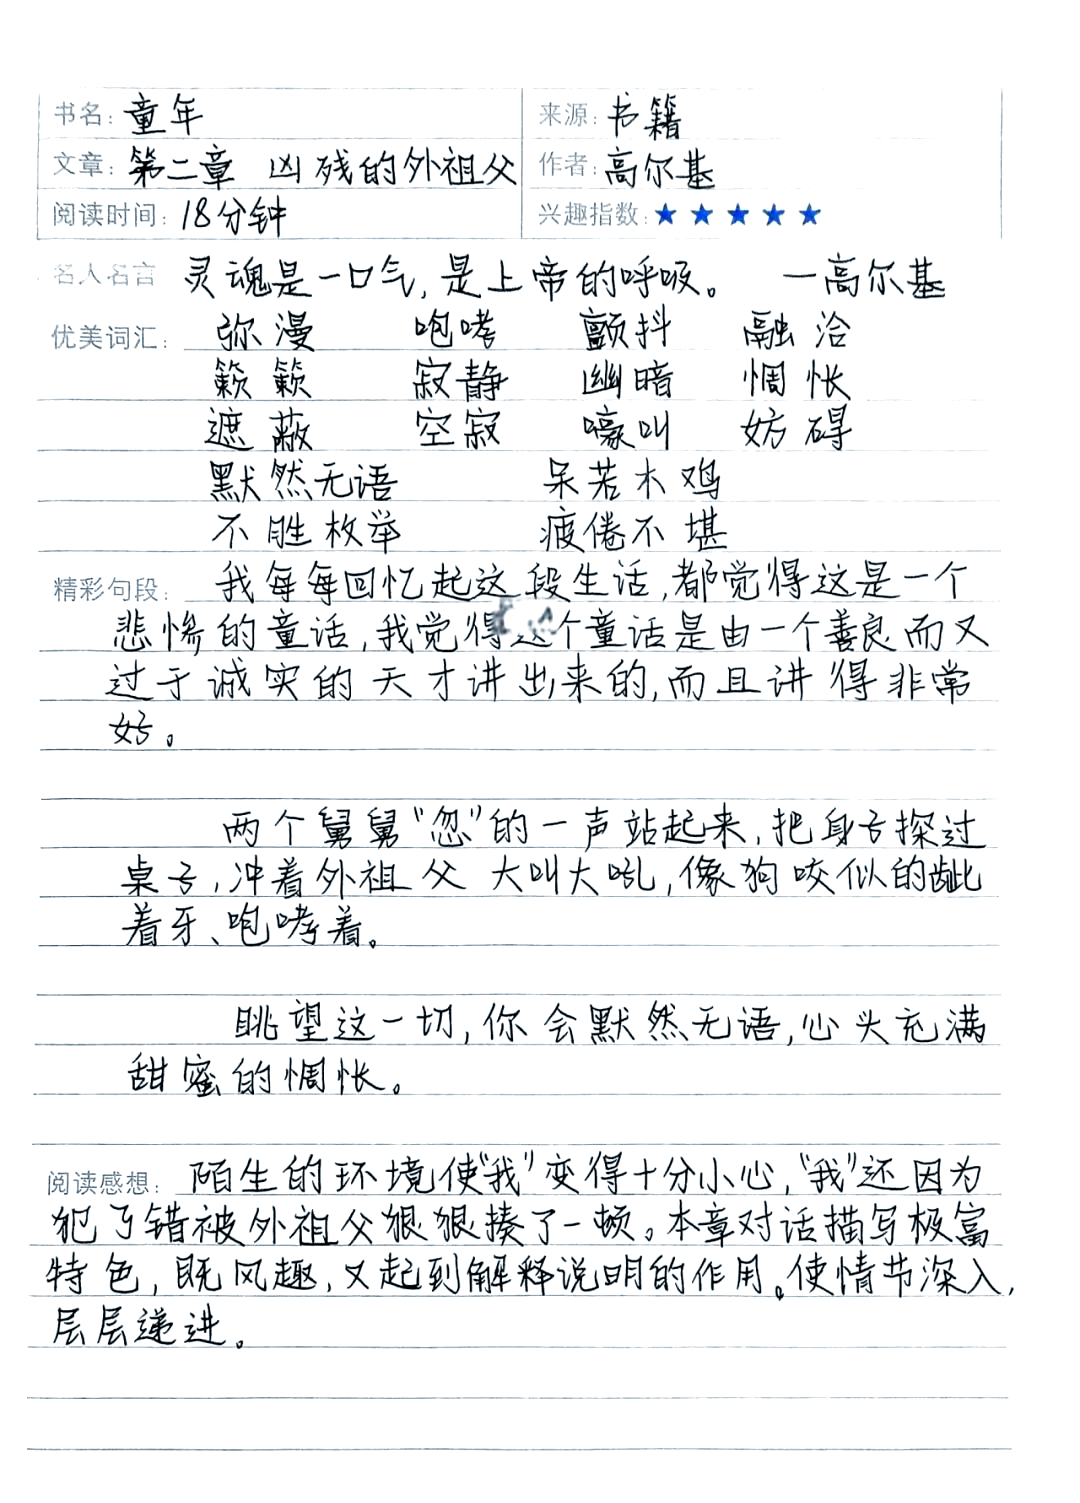 书名：童年 来源：书籍
文章：第二章 凶残的外祖父 作者：高尔基
阅读时间：18分钟 兴趣指数：★★★★★
名人名言 灵魂是一口气，是上帝的呼吸。 一高尔基
优美词汇： 弥漫 咆哮 颤抖 融洽
簌簌 寂静 幽暗 惆怅
遮蔽 空寂 嚎叫 妨碍
默然无语 呆若木鸡
不胜枚举 疲倦不堪
精彩句段： 我每每回忆起这段生活，都觉得这是一个
悲惨的童话，我觉得这个童话是由一个善良而又
过于诚实的天才讲出来的，而且讲得非常
好。
两个舅舅“忽”的一声站起来，把身子探过
桌子，冲着外祖父大叫大吼，像狗咬似的龇
着牙、咆哮着。
眺望这一切，你会默然无语，心头充满
甜蜜的惆怅。
阅读感想： 陌生的环境使“我”变得十分小心，“我”还因为
犯了错被外祖父狠狠揍了一顿。本章对话描写极富
特色，既风趣，又起到解释说明的作用。使情节深入，
层层递进。